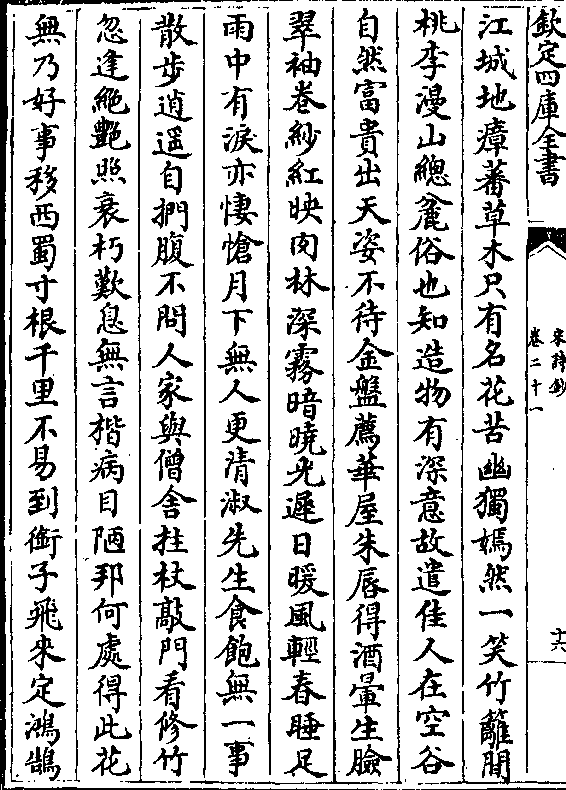 欽定四庫全書
宋詩鈔
卷二十一
十六
江城地瘴蕃草木只有名花苦幽獨嫣然一笑竹籬間
桃李漫山總麄俗也知造物有深意故遣佳人在空谷
自然富貴出天姿不待金盤薦華屋朱唇得酒暈生臉
翠袖卷紗紅映肉林深霧暗曉光遲日暖風輕春睡足
雨中有淚亦悽愴月下無人更清淑先生食飽無一事
散步逍遥自捫腹不問人家與僧舍拄杖敲門看修竹
忽逢絶艶照衰朽歎息無言揩病目陋邦何處得此花
無乃好事移西蜀寸根千里不易到銜子飛來定鴻鵠